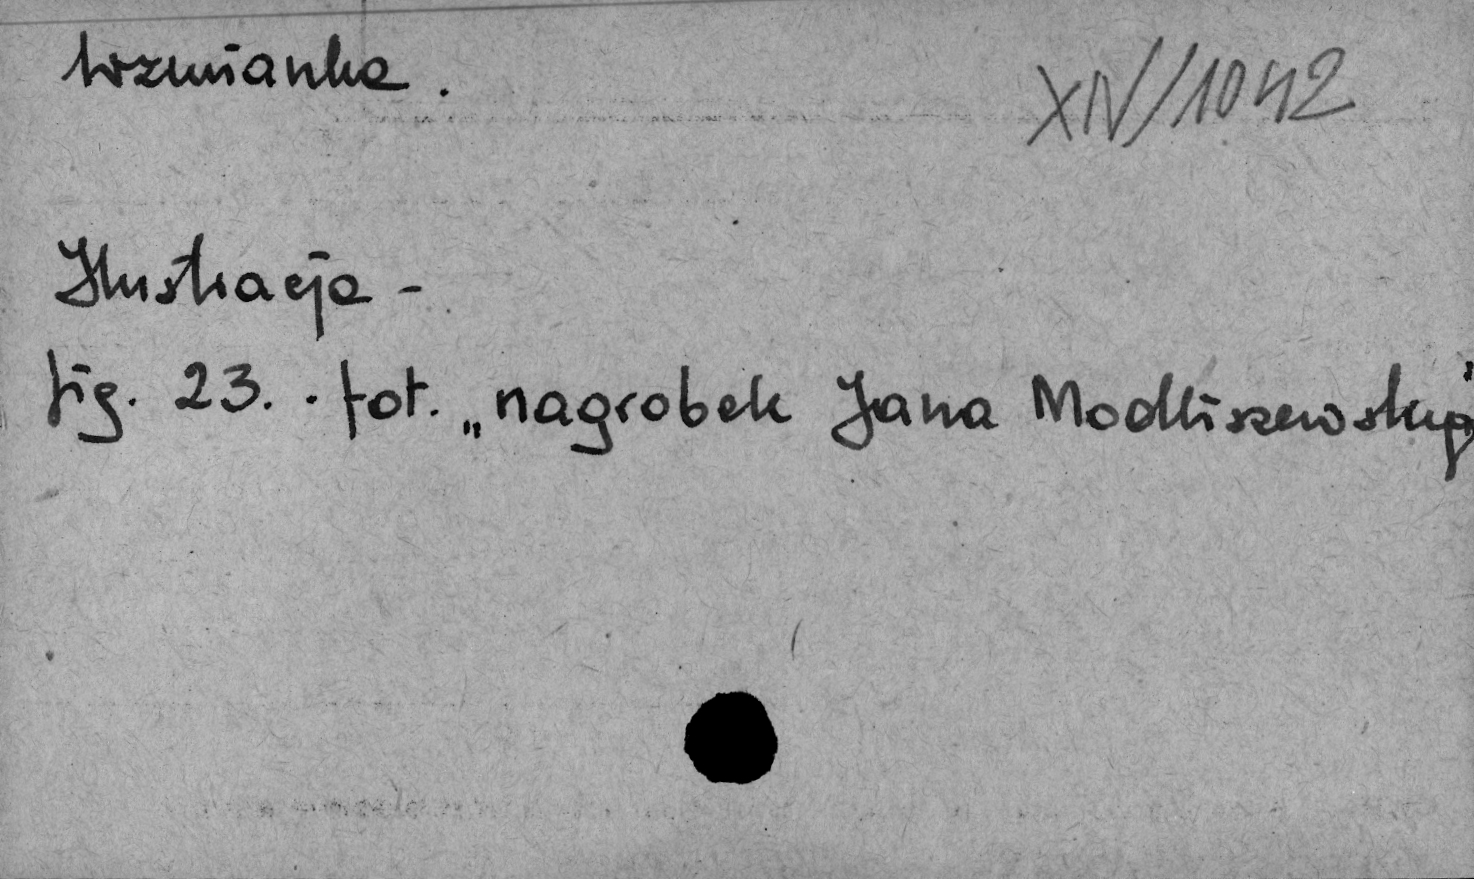 wzmianka.
XIV/1042
Ilustracja -
fig. 23. . fot. „nagrobek Jana Modliszewskiego"